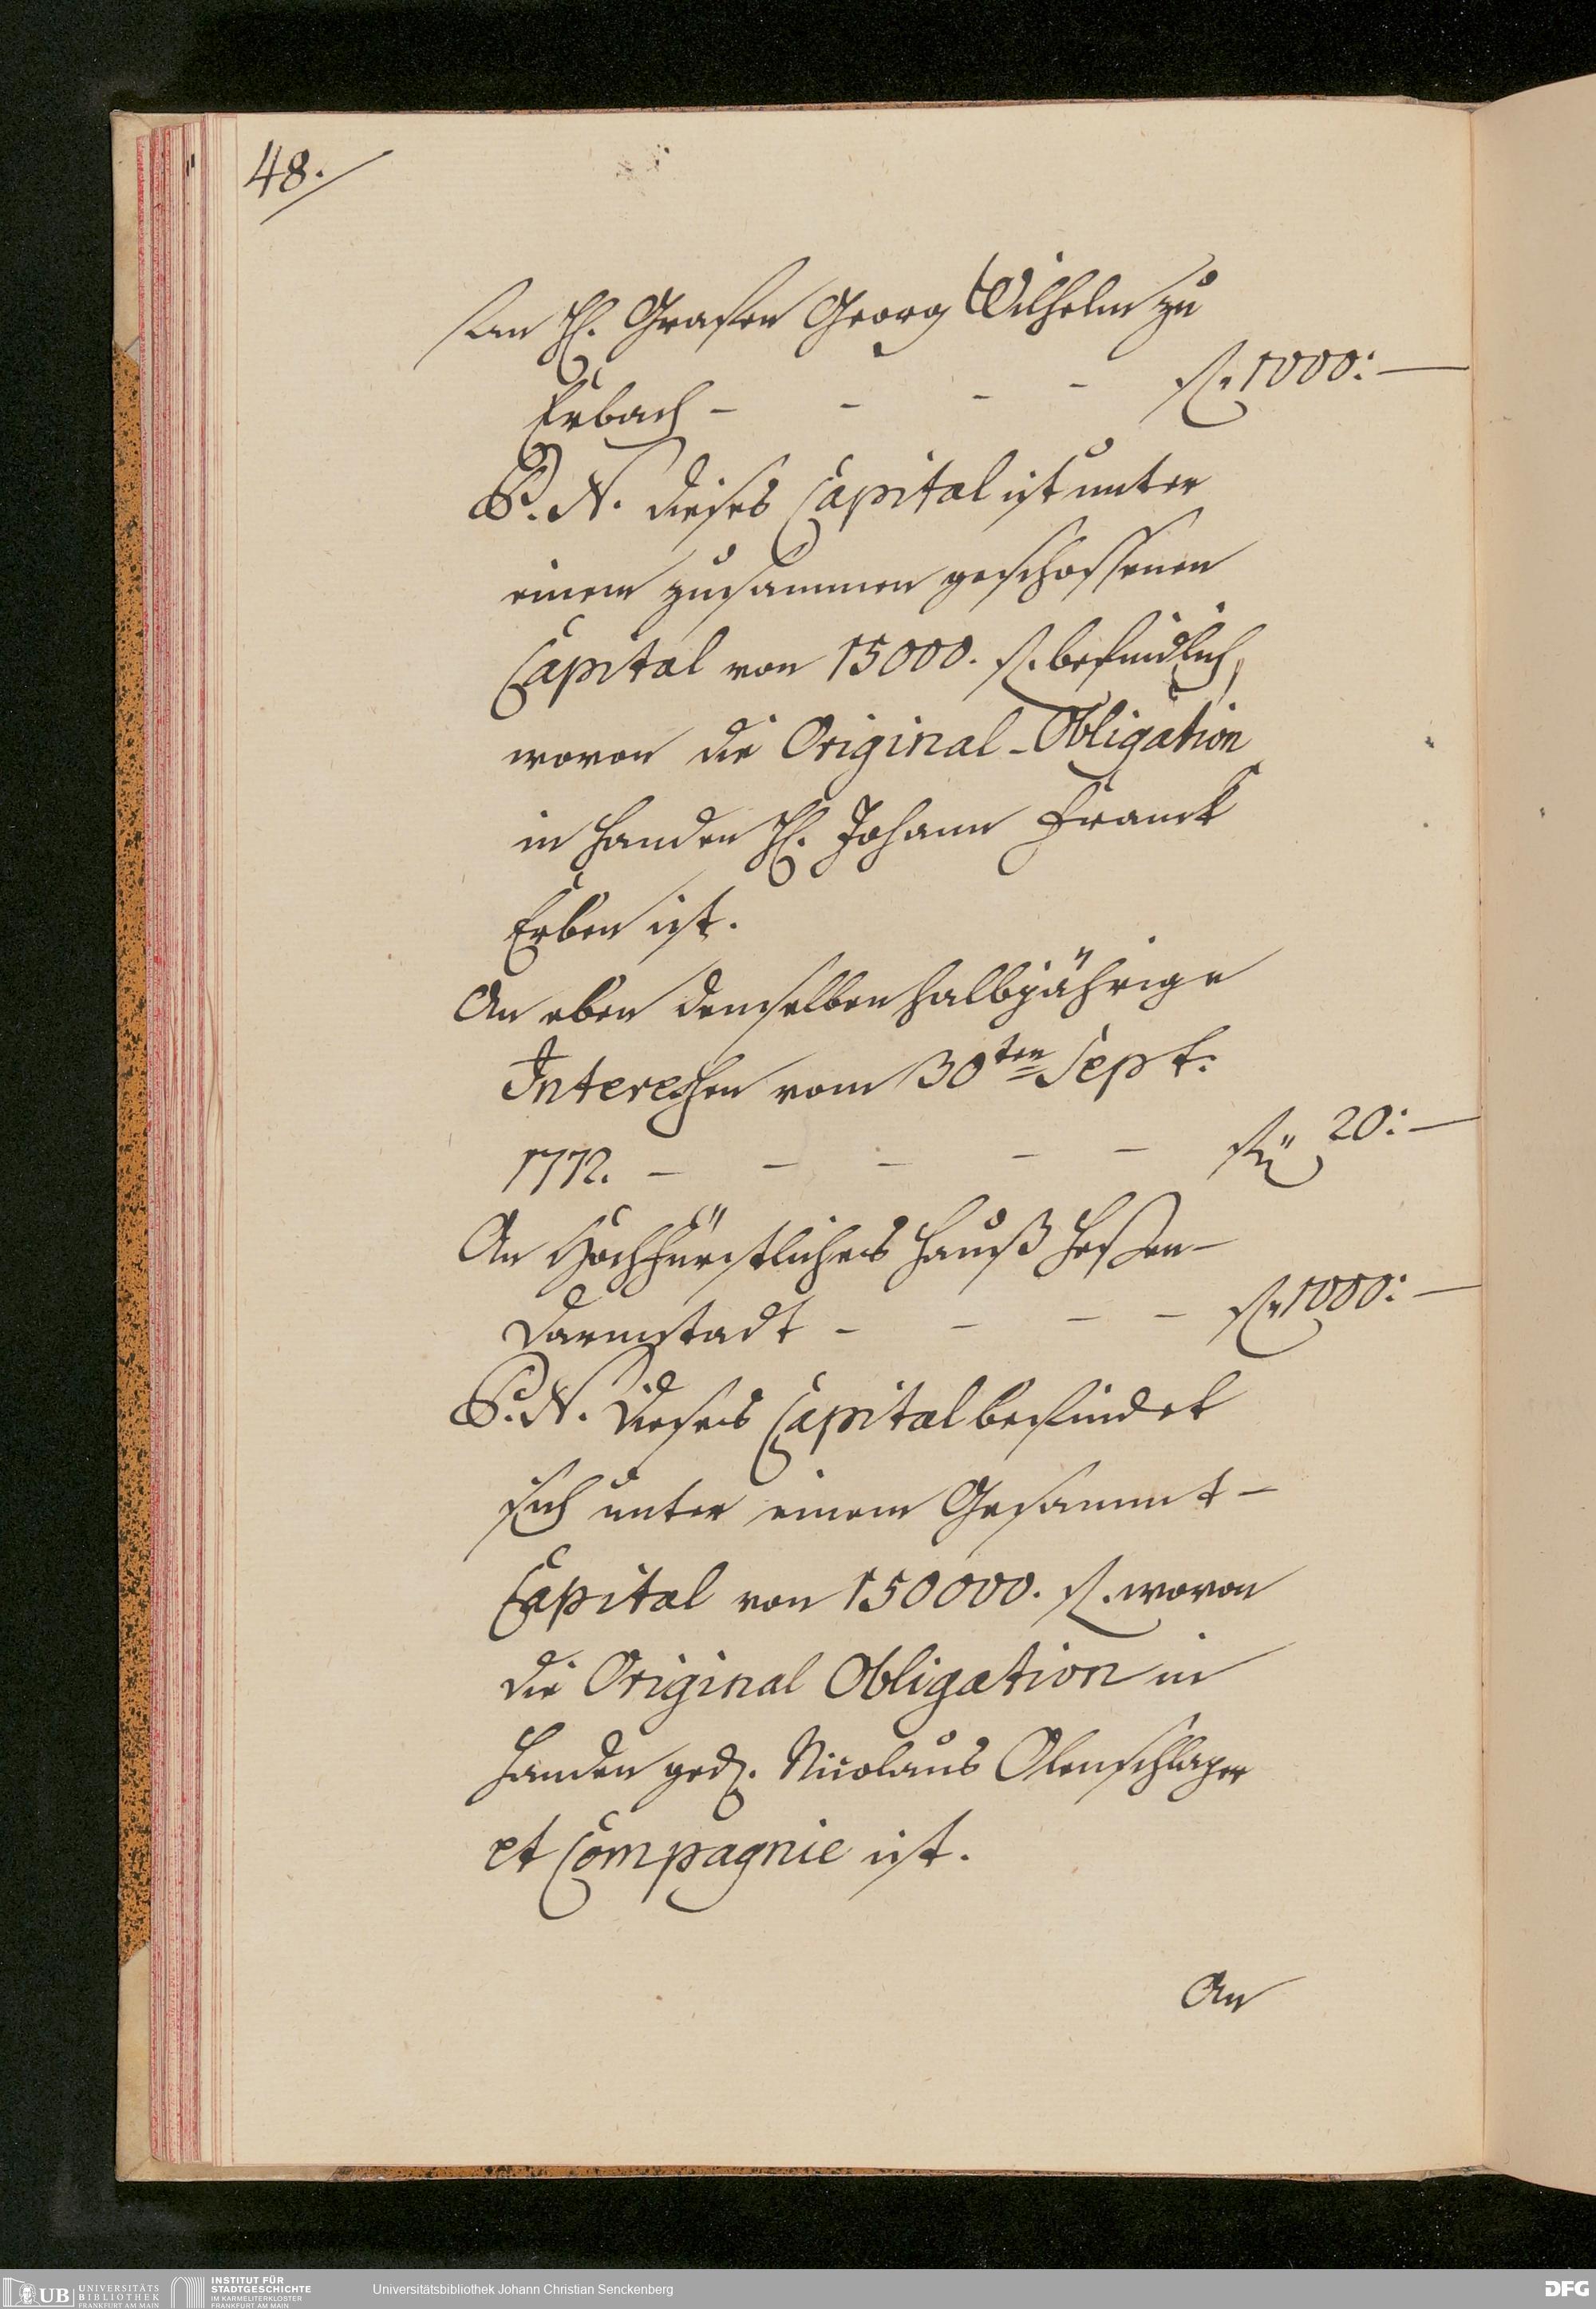 48.
An H. Grafen Georg Wilhelm zu
Erbach - - - - fl. 1000: —
P. N. dieses Capital ist unter
einem zusammen geschossenen
Capital von 15000. fl. befindlich,
wovon die Original-Obligation
in Handen H. Johann Franck
Erben ist.
An eben demselben halbjährige
Interessen vom 30ten Sept.
1772. - - - - - fl. 20: —
An Hochfürstliches Hauß Hessen-
Darmstadt - - - - fl. 1000: —
P. N. dieses Capital befindet
sich unter einem Gesammt-
Capital von 150000. fl. wovon
die Original Obligation in
Handen ged. Nicolaus Olenschlager
et Compagnie ist.
An
UB UNIVERSITÄTS
BIBLIOTHEK
FRANKFURT AM MAIN
INSTITUT FÜR
STADTGESCHICHTE
IM KARMELITERKLOSTER
FRANKFURT AM MAIN
Universitätsbibliothek Johann Christian Senckenberg
DFG